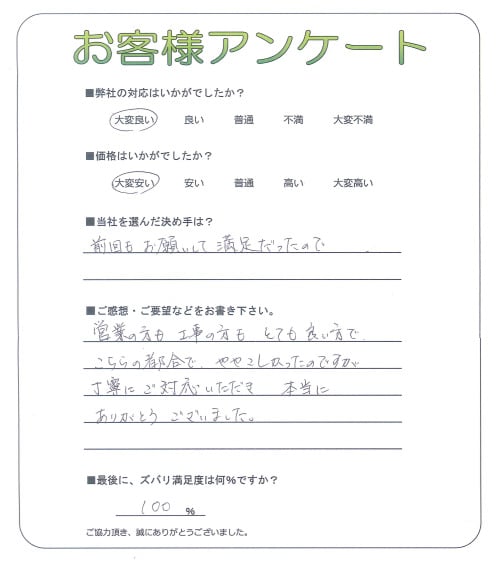 お客様アンケート
■弊社の対応はいかがでしたか?
大変良い 良い 普通 不満 大変不満
■価格はいかがでしたか?
大変安い 安い 普通 高い 大変高い
■当社を選んだ決め手は?
前回もお願いして満足だったので
■ご感想・ご要望などをお書き下さい。
営業の方も工事の方もとても良い方で
こちらの都合で、ややこしかったのですが
丁寧にご対応いただき 本当に
ありがとうございました。
■最後に、ズバリ満足度は何%ですか?
100 %
ご協力頂き、誠にありがとうございました。